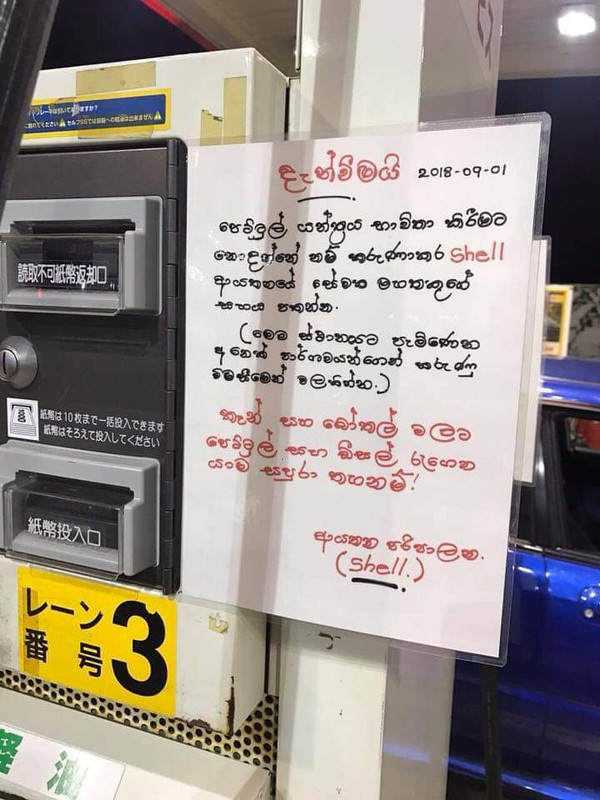 දැන්වීමයි 2018-09-01
පෙට්‍රල් යන්ත්‍රය භාවිතා කිරීමට
නොදන්නේ නම් කරුණාකර Shell
ආයතනයේ සේවක මහතකුගේ
සහය පතන්න.
(මෙම ස්ථානයට පැමිණෙන
අනෙක් පාර්ශවයන්ගෙන් කරුණු
විමසීමෙන් වලකින්න.)
කෑන් සහ බෝතල් වලට
පෙට්‍රල් සහ ඩීසල්, රැගෙන
යාම සපුරා තහනම්!
ආයතන පරිපාලන.
(Shell.)
読取不可紙幣返却口
紙幣は10枚まで一括投入できます
紙幣はそろえて投入してください
紙幣投入口
レーン
番号 3
軽油